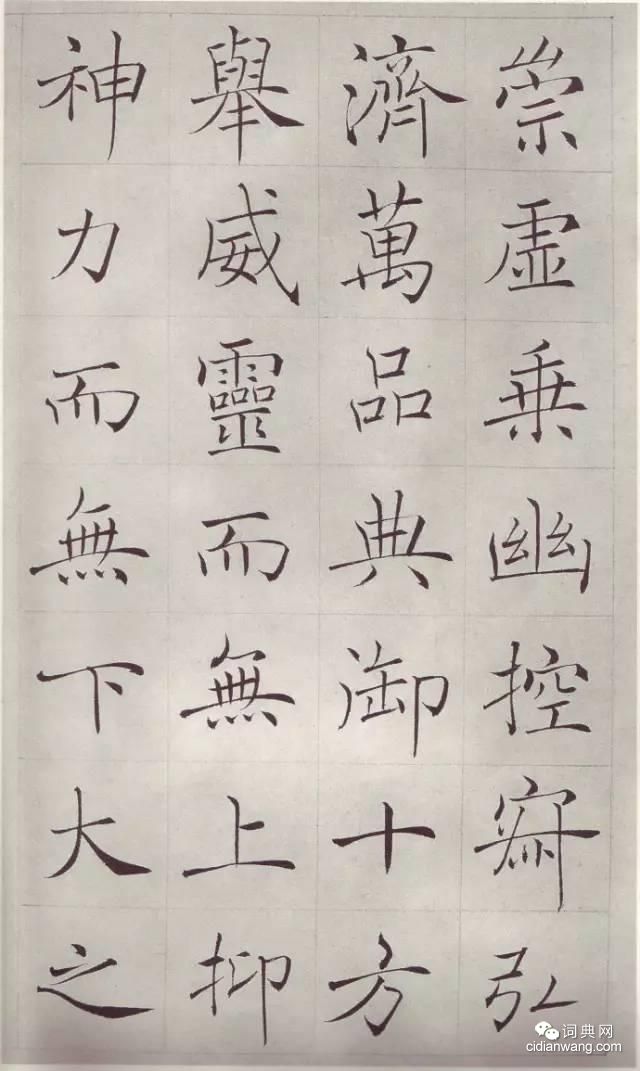 崇虛乗幽控寂弘
濟萬品典御十方
舉威靈而無上抑
神力而無下大之
词典网
cidianwang.com